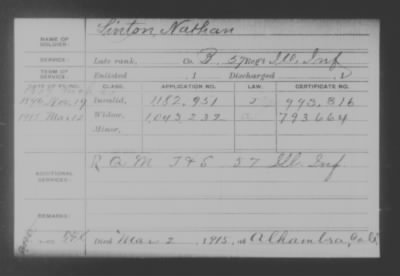 NAME OF SOLDIER: Linton, Nathan
SERVICE: Late rank, Co. B, 57 Reg't Ill. Inf
TERM OF SERVICE: Enlisted , 1 Discharged , 1
CLASS. APPLICATION NO. LAW. CERTIFICATE NO.
1896 Nov. 19 Invalid, 1182.951 993.816
1915 Mar. 12 Widow, 1,043.232 793664
Minor,
R Q M 57 Ill. Inf.
ADDITIONAL SERVICES:
REMARKS:
Died Mar 2, 1915, at Alhambra, Cal